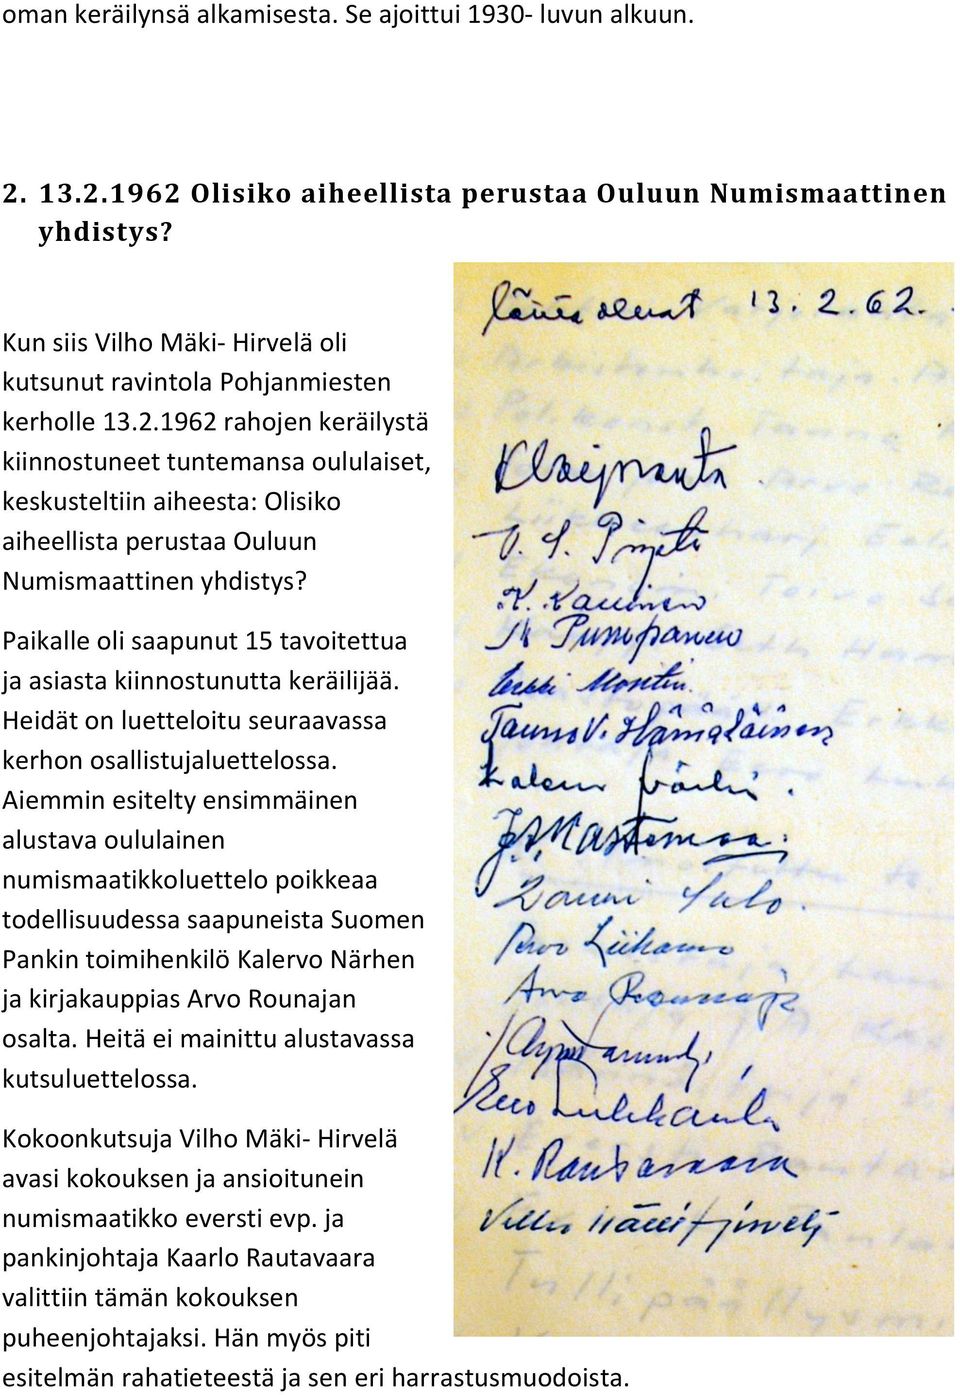 oman keräilynsä alkamisesta. Se ajoittui 1930- luvun alkuun.
2. 13.2.1962 Olisiko aiheellista perustaa Ouluun Numismaattinen
yhdistys?
Kun siis Vilho Mäki- Hirvelä oli
kutsunut ravintola Pohjanmiesten
kerholle 13.2.1962 rahojen keräilystä
kiinnostuneet tuntemansa oululaiset,
keskusteltiin aiheesta: Olisiko
aiheellista perustaa Ouluun
Numismaattinen yhdistys?
Paikalle oli saapunut 15 tavoitettua
ja asiasta kiinnostunutta keräilijää.
Heidät on luetteloitu seuraavassa
kerhon osallistujaluettelossa.
Aiemmin esitelty ensimmäinen
alustava oululainen
numismaatikkoluettelo poikkeaa
todellisuudessa saapuneista Suomen
Pankin toimihenkilö Kalervo Närhen
ja kirjakauppias Arvo Rounajan
osalta. Heitä ei mainittu alustavassa
kutsuluettelossa.
Kokoonkutsuja Vilho Mäki- Hirvelä
avasi kokouksen ja ansioitunein
numismaatikko eversti evp. ja
pankinjohtaja Kaarlo Rautavaara
valittiin tämän kokouksen
puheenjohtajaksi. Hän myös piti
esitelmän rahatieteestä ja sen eri harrastusmuodoista.
läsnä olevat 13.2.62.
V. S.
K. Kauninen
Pumpanen
Erkki
Tauno V. Hämäläinen
Lauri Salo.
Arvo Rounaja
Eero Luhkaula
K. Rautavaara
Vilho Mäki-Hirvelä